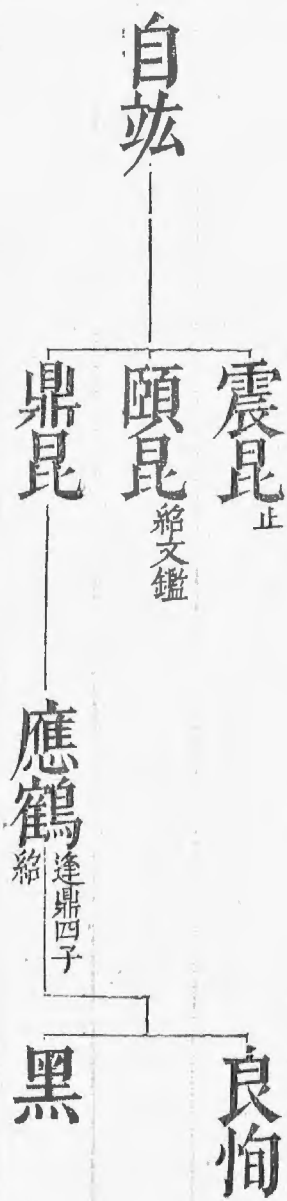 自竑
震昆 止
頤昆 紹文鑑
鼎昆
應鶴 逢鼎四子紹
良恂
黑